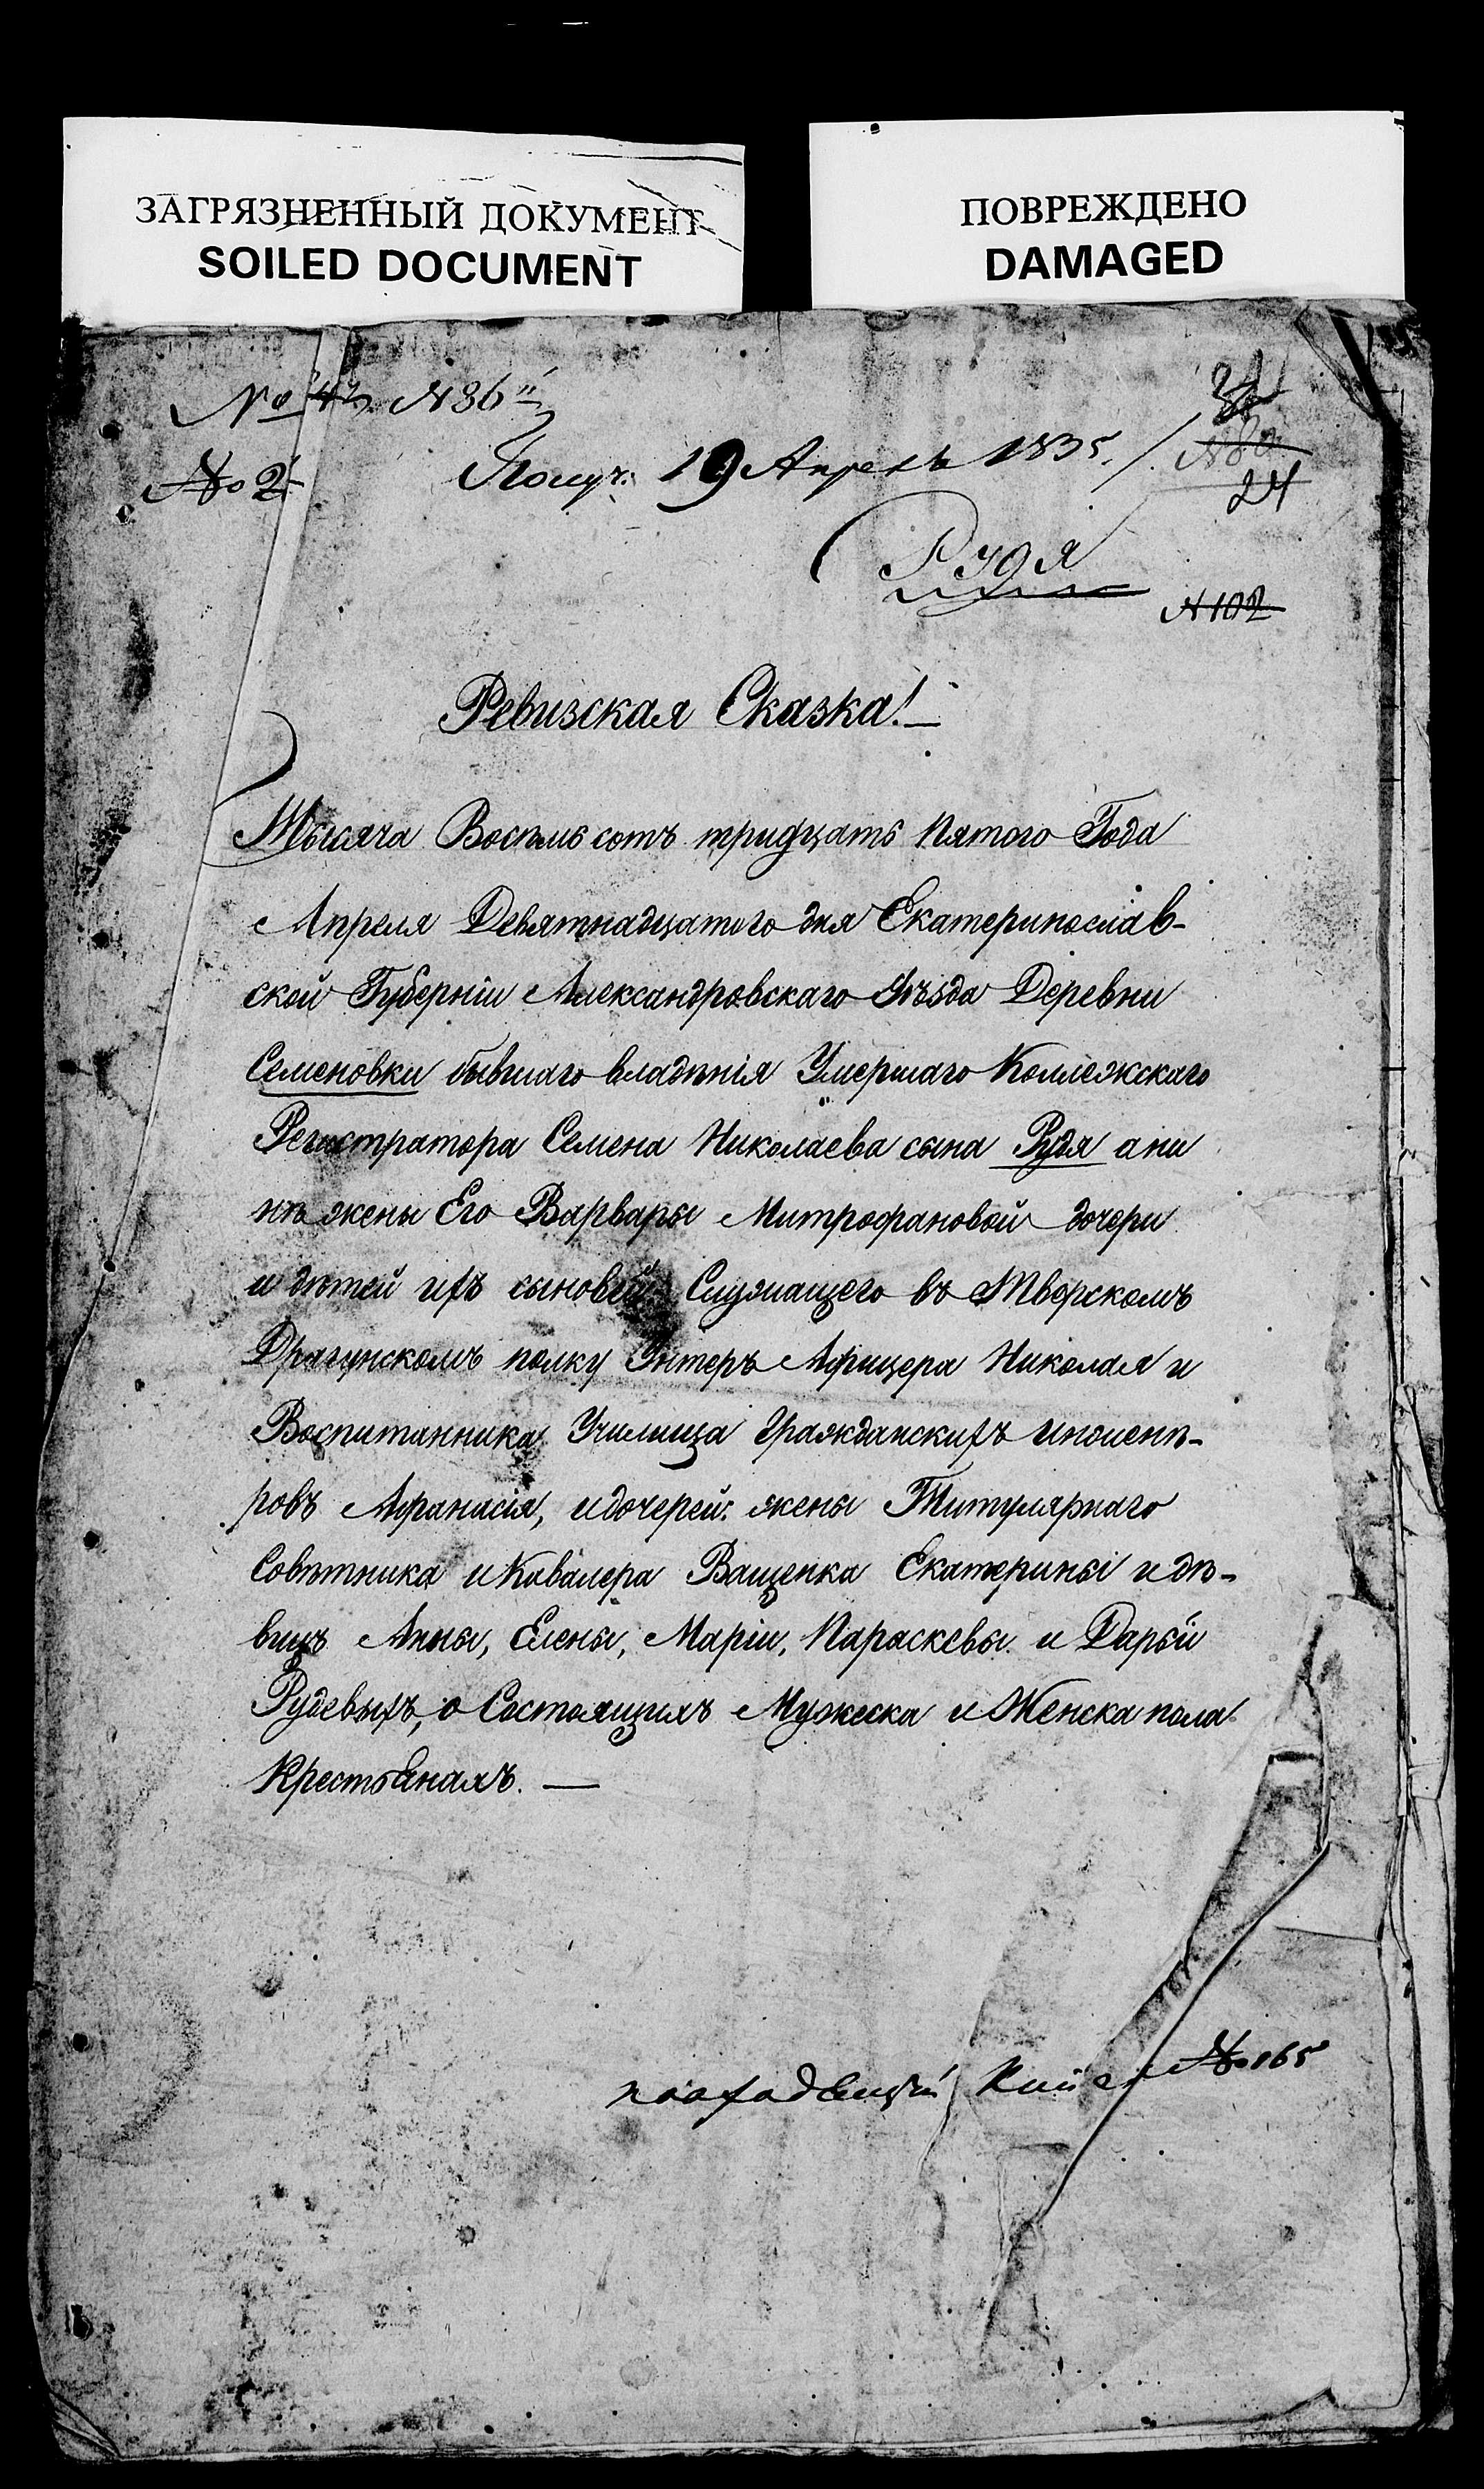 ЗАГРЯЗНЕННЫЙ ДОКУМЕНТ
SOILED DOCUMENT
ПОВРЕЖДЕНО
DAMAGED
№ 42 № 86
№ 2
Получ: 19 Апреля 1835.
24
Рудя
№ 102
Ревизская Сказка!—
Тысяча Восемь сотъ тридцать Пятого Года
Апреля Девятнадцатого дня Екатеринослав-
ской Губерніи Александровскаго Уѣзда Деревни
Семеновки бывшаго владѣнія Умершаго Коллежскаго
Регистратора Семена Николаева сына Рудя а ни
нѣ жены Его Варвары Митрофановой дочери
и дѣтей ихъ сыновей Служащего въ Тверскомъ
Драгунскомъ полку Унтеръ Афицера Николая и
Воспитанника Училища Гражданскихъ инженѣ-
ровъ Афанасія, и дочерей: жены Титулярнаго
Совѣтника и Кавалера Ващенка Екатерины и дѣ-
вицъ Анны, Елены, Маріи, Параскевы и Дарьи
Рудевыхъ, о Состоящихъ Мужеска и Женска пола
Крестьянахъ. —
№ 165